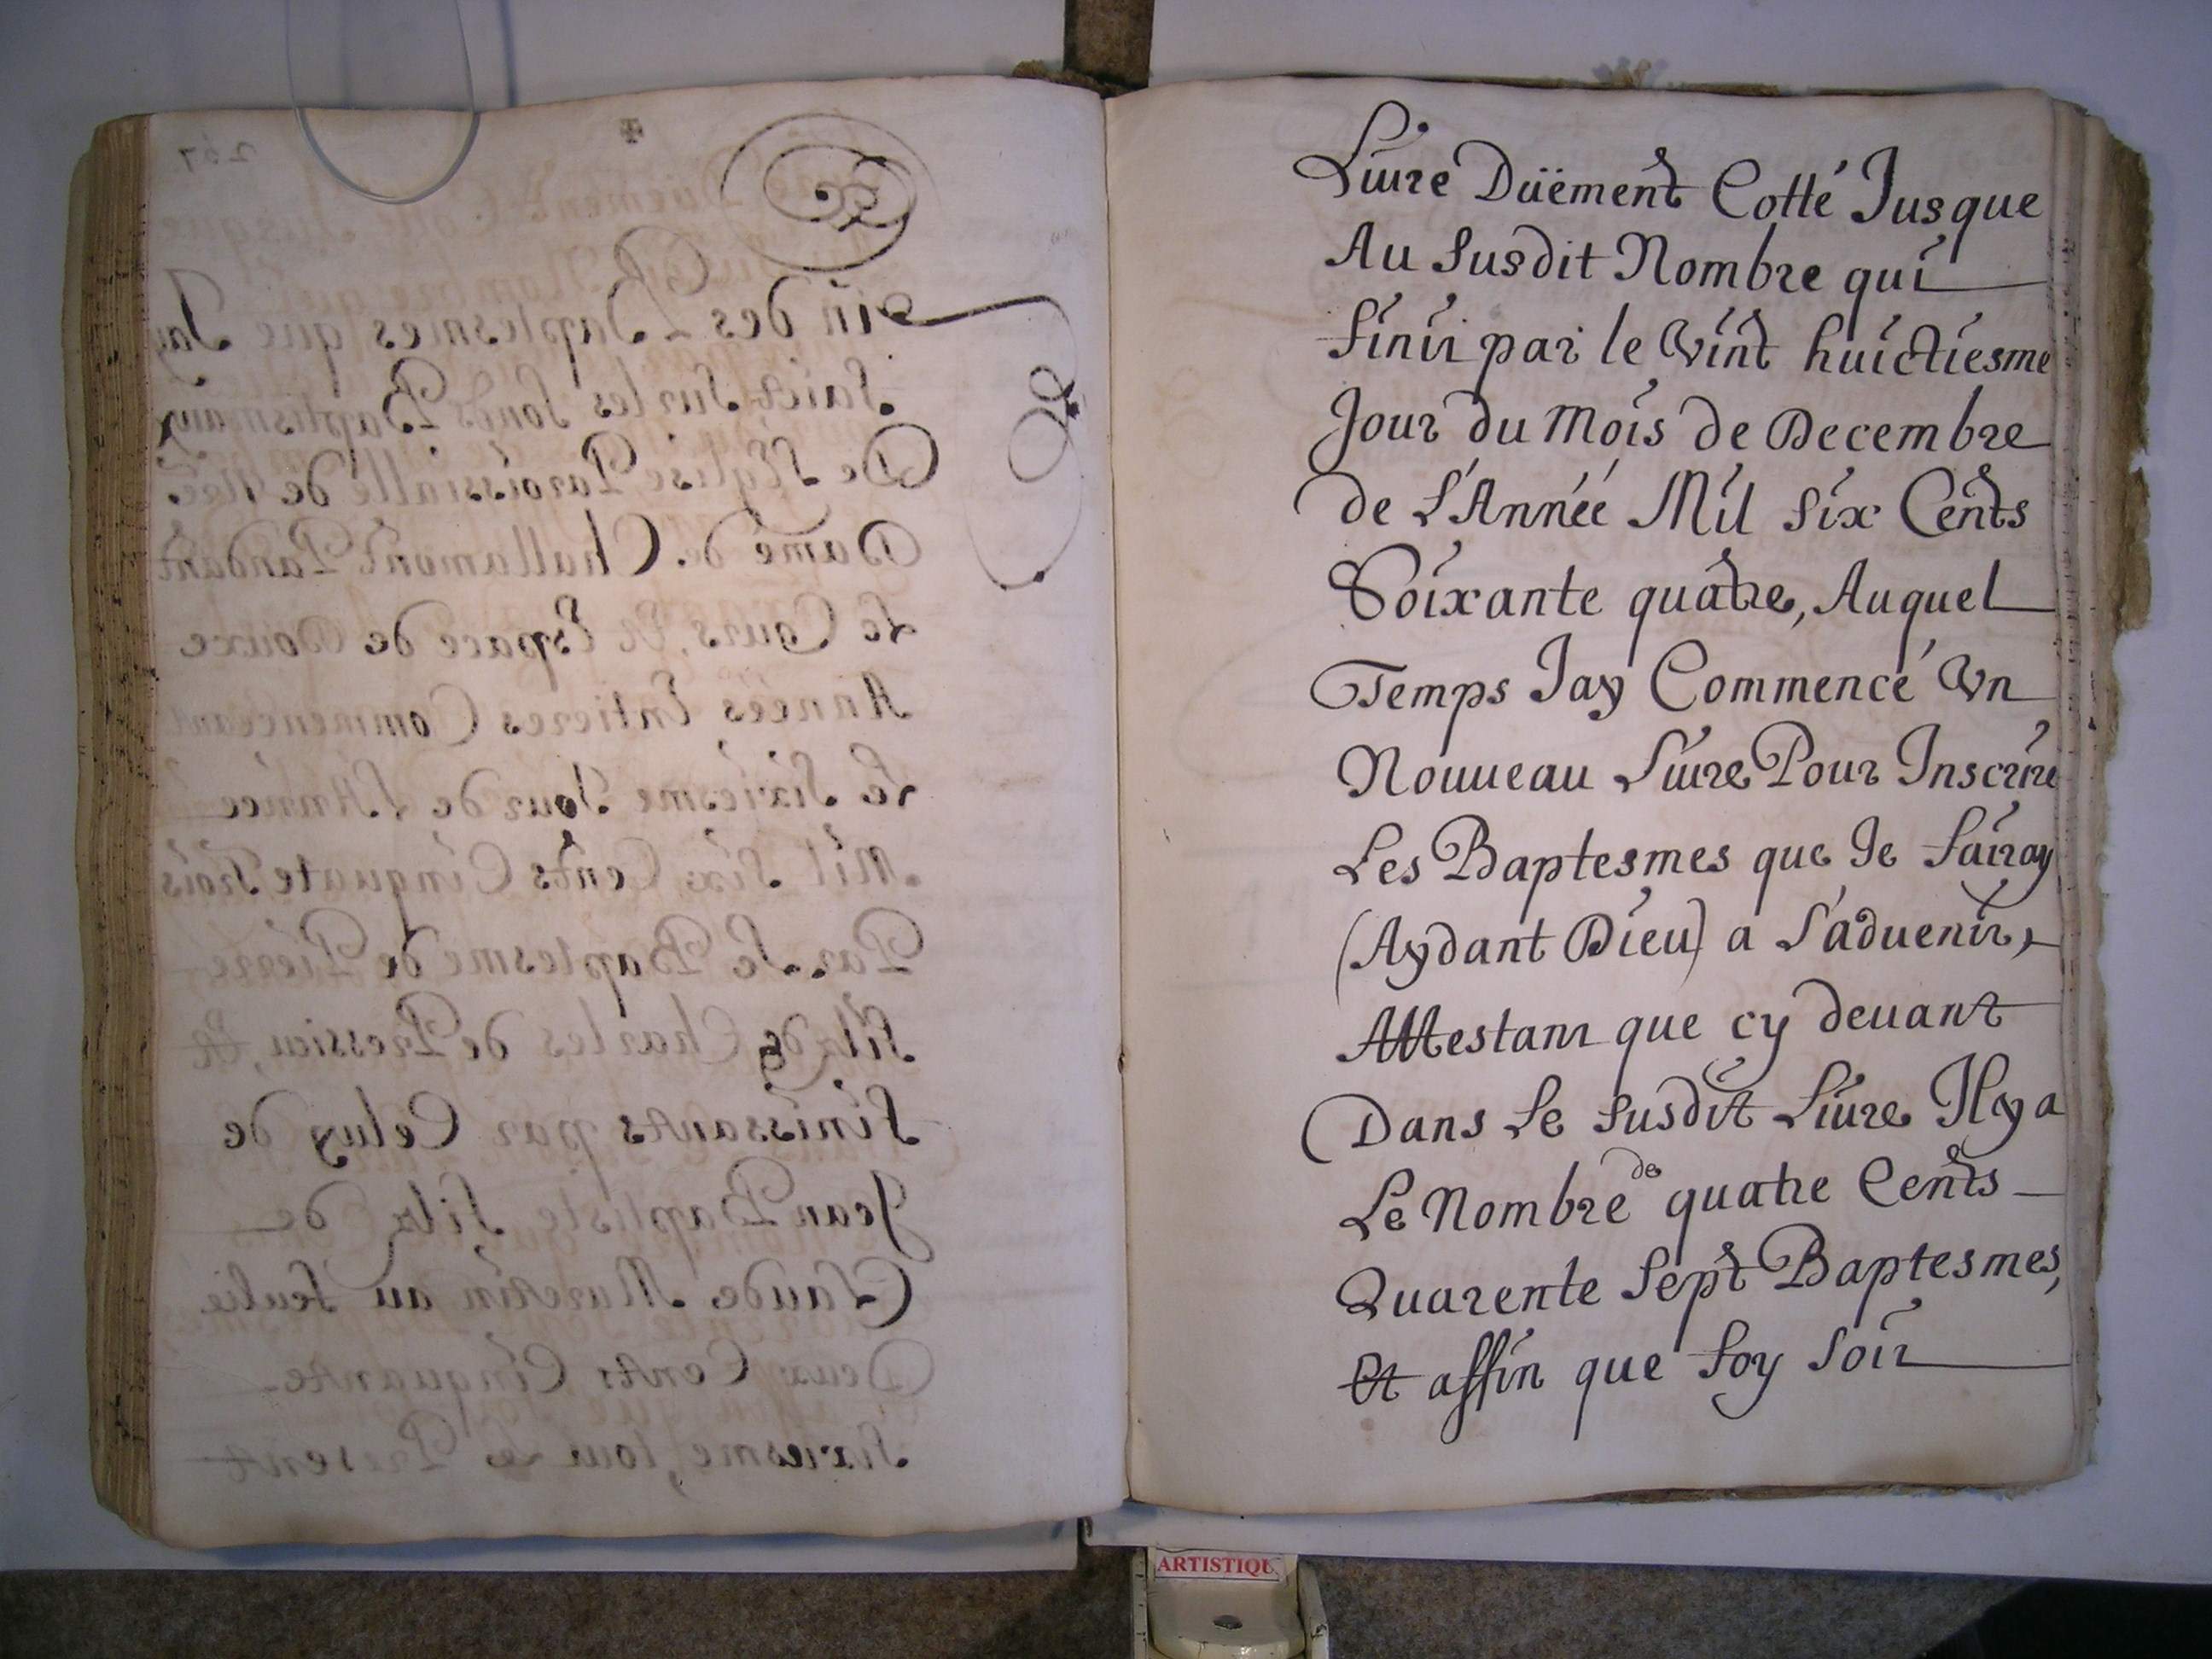 257
Fin des Baptesmes que Jay
Faict Sur les fonds Baptismaux
De l'Eglise Paroissialle de Nre.
Dame de Challamont Pandant
Le Cours, de Espace de Douxe
Années Entieres Commenceant
Le Sixiesme Jour de l'Année
Mil Six Cents Cinquate Trois
Par Le Baptesme de Pierre
filz de Charles de Pressieu, Et
finissants par Celuy de
Jean Baptiste filz de
Claude au feulie
Deux Cents Cinquante
Sixiesme, tout Le Present
Liure Düement Cotté Jusque
Au Susdit Nombre qui
finir par le Vint huictiesme
Jour du Mois de Decembre
de L'Année Mil Six Cents
Soixante quatre, Auquel
Temps Jay Commencé Vn
Nouueau Liure Pour Inscrire
Les Baptesmes que Je fairay
(Aydant Dieu) a l'aduenir,
Attestant que cy deuant
Dans Le susdit Liure Il y a
Le Nombre de quatre Cents
Quarente Sept Baptesmes,
Et affin que foy soit
ARTISTIQU